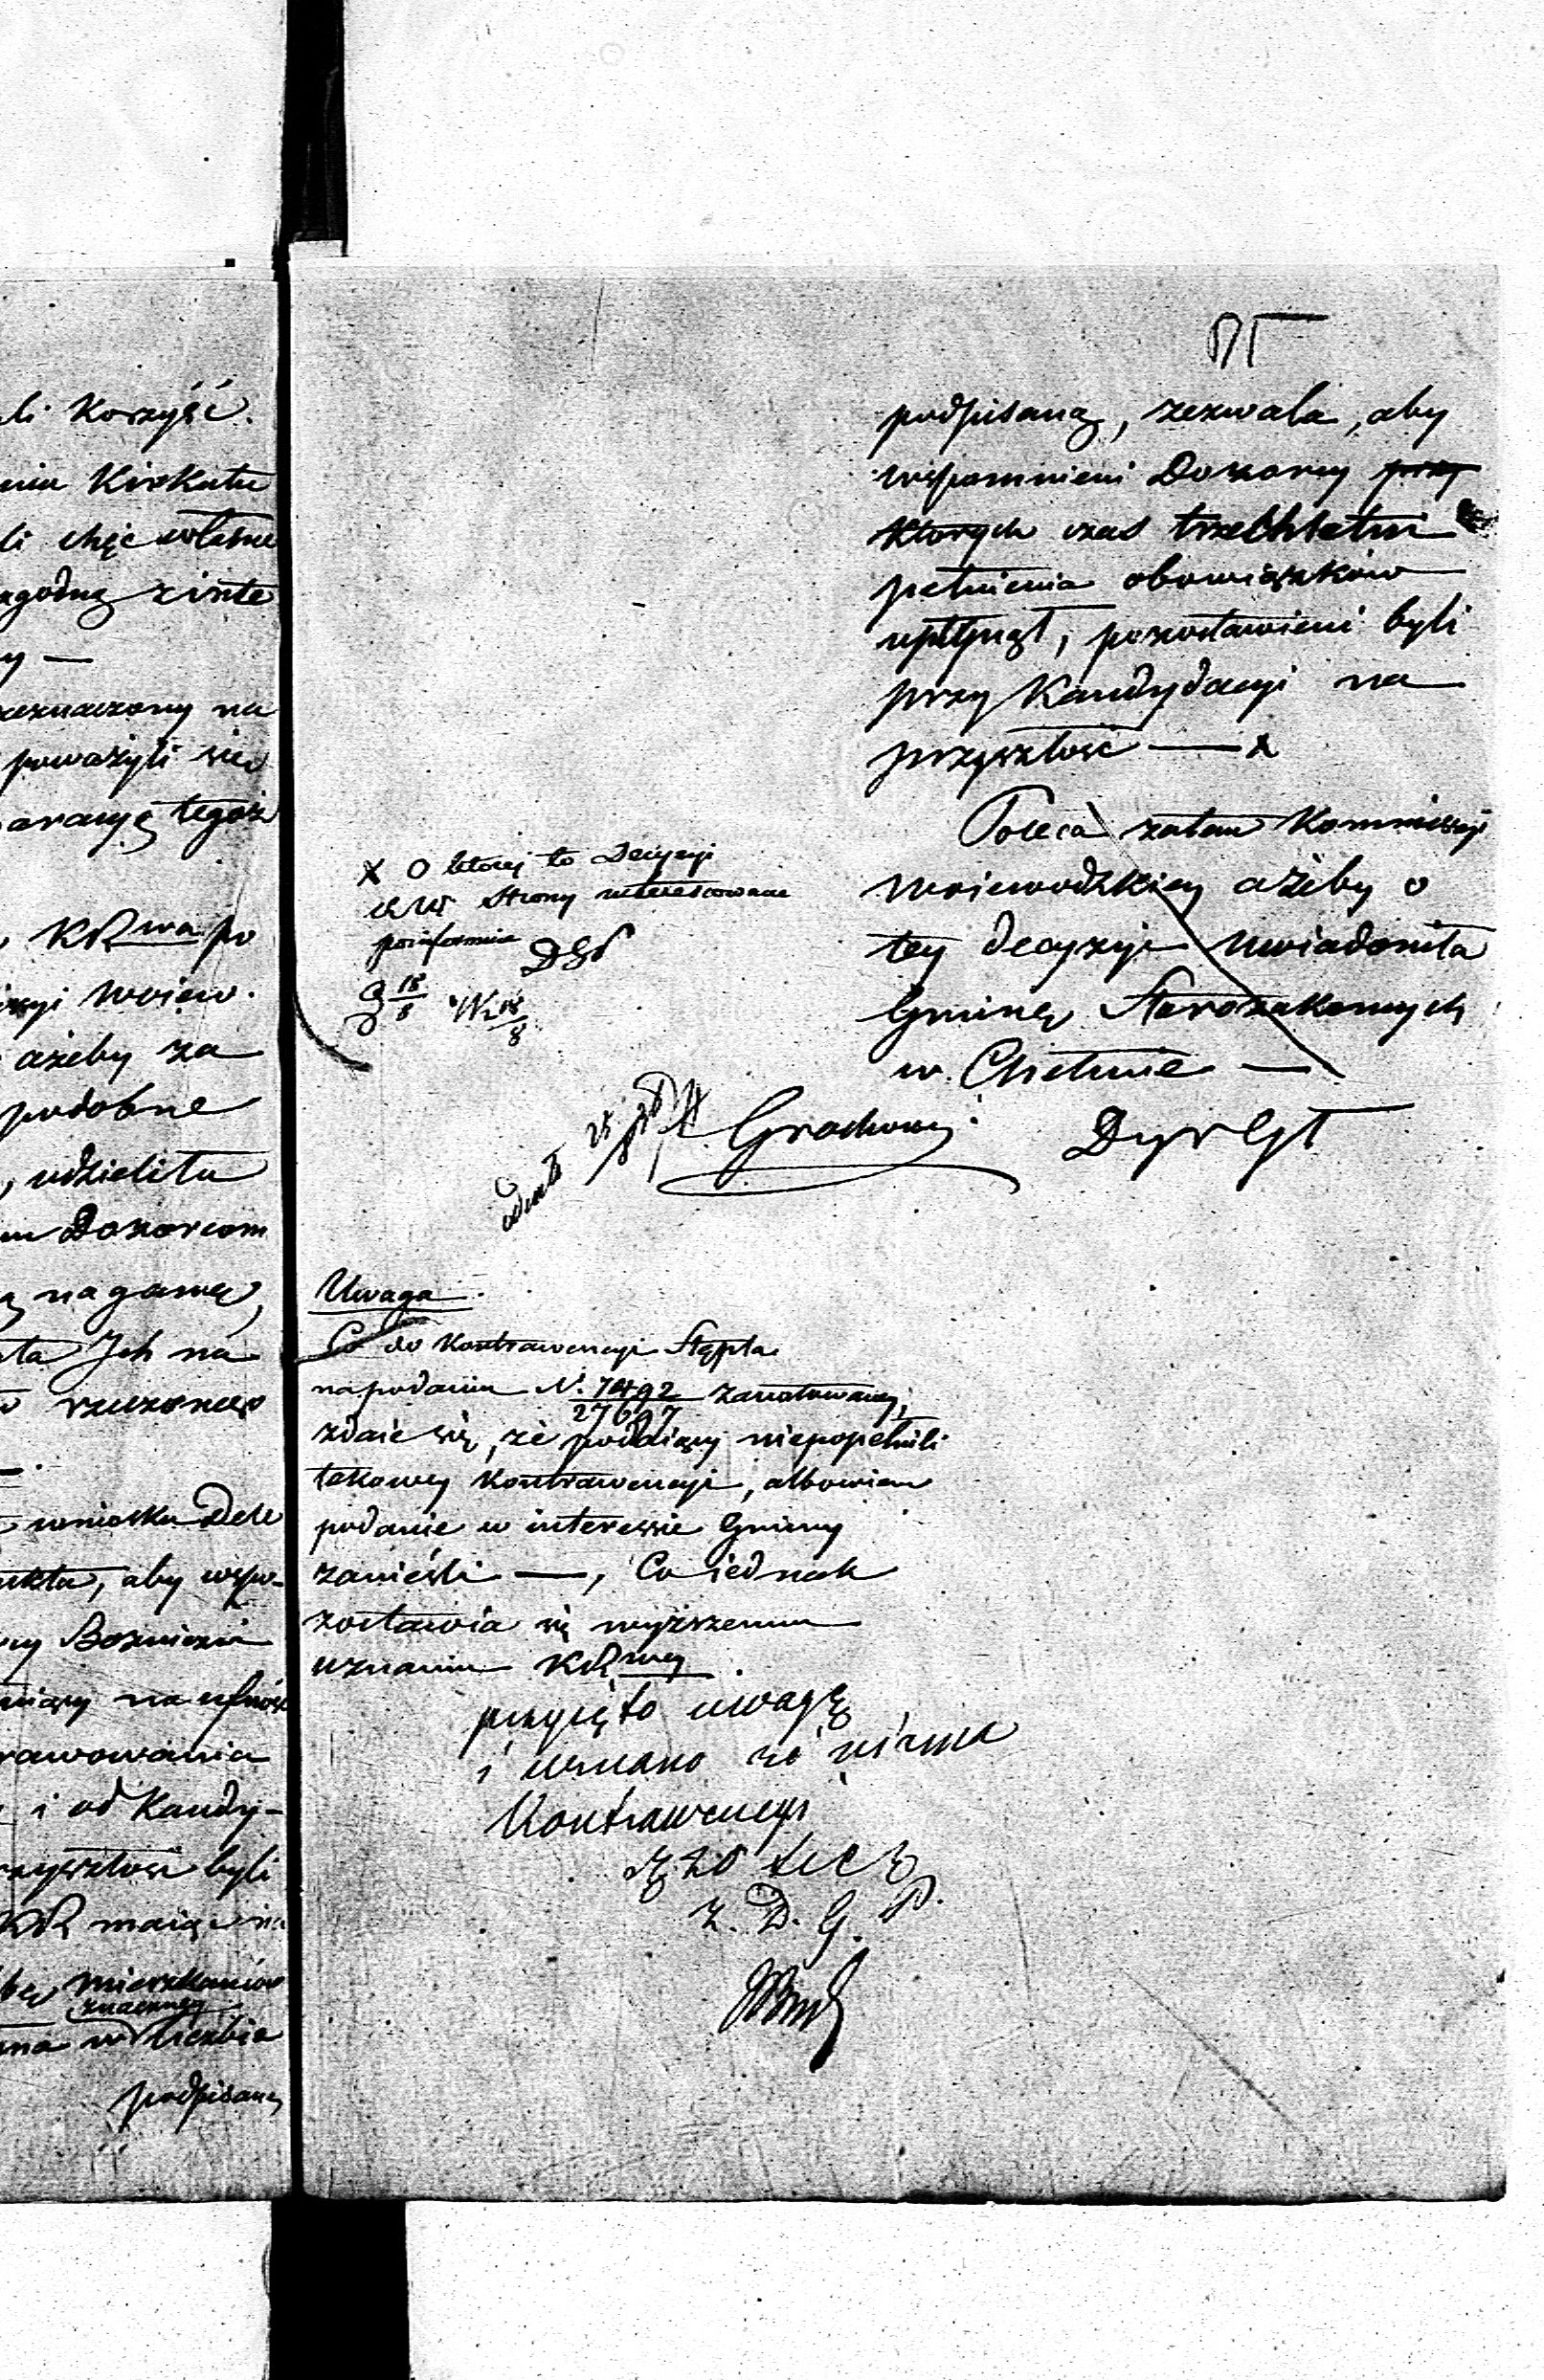 li Korzyść.
nia Kirkutu
li chęc własne
zgodną z inte
y —
przeznaczony na
poważyli się
tegoż
KRwa po
woiew.
ażeby za
podobne
, udzieliła
Dozorcom
naganę,
Ich na
rzeczonego
wniosku Dele
aby wspo-
Bożnicze
rawowania
i od Kandy-
rzyszłosc byli
KR maiąc na
mieszkańców
znaczney
w liczbie
podpisaną
podpisaną, zezwala, aby
wspomnieni Dozorcy przy
ktorych czas trzechletni
pełnienia obowiązków
upłynął, pozostawieni byli
przy Kandydacyi na
przyszłość — x
Poleca zatem Kommissyi
Woiewodzkiey ażeby o
tey decyzyi uwiadomiła
Gminę Starozakonnych
w Chełmie —
X O ktorej to Decyzyi
KW Strony interessowane
poinformuie
DGP
18/8 W 18/8
Grochowy
Dyr GJ
Uwaga
Co do Kontrawencyi Stępla
na podaniu N. 7492/27697 zanotowaney,
zdaie się, że podaiący niepopełnili
takowey Kontrawencyi, albowiem
podanie w interessie Gminy
zanieśli —, Co iednak
zostawia się wyższemu
uznaniu KRwey.
przyięto uwagę
i uznano że niema
Kontrawencyi
Z. D. G. P.